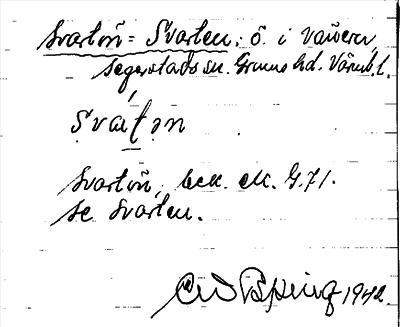 Svartön = Svarten: ö. i Vänern,
Segerstads sn. Grums hd. Värml. l.
Svaʹtən
Svartön, bek. ek. G.71.
se Svarten.
1942